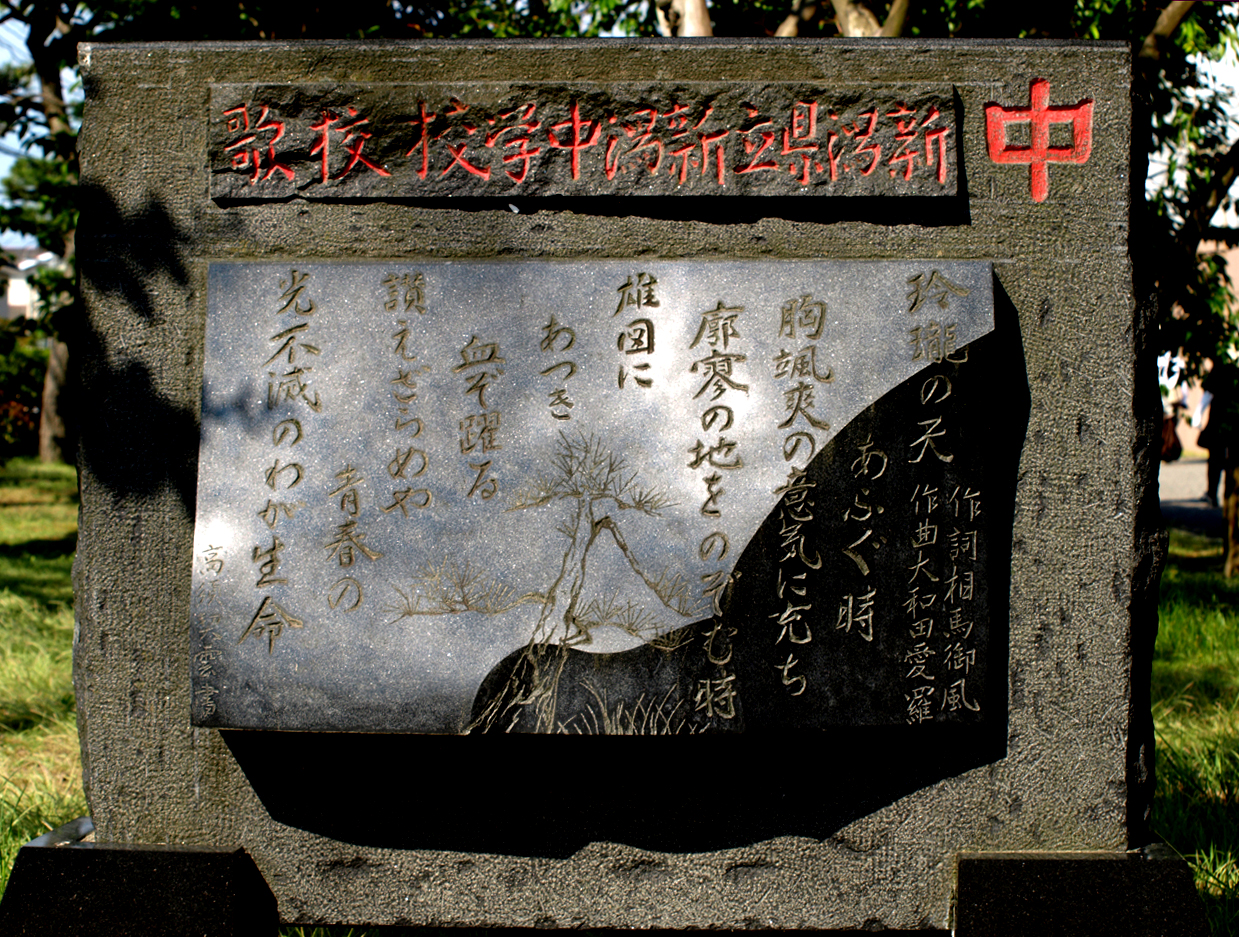 中
新潟県立新潟中学校校歌
作詞相馬御風
作曲大和田愛羅
玲瓏の天
あふぐ時
胸颯爽の意気に充ち
廓寥の地をのぞむ時
雄図に
あつき
血ぞ躍る
讃えざらめや
青春の
光不滅のわが生命
高 書